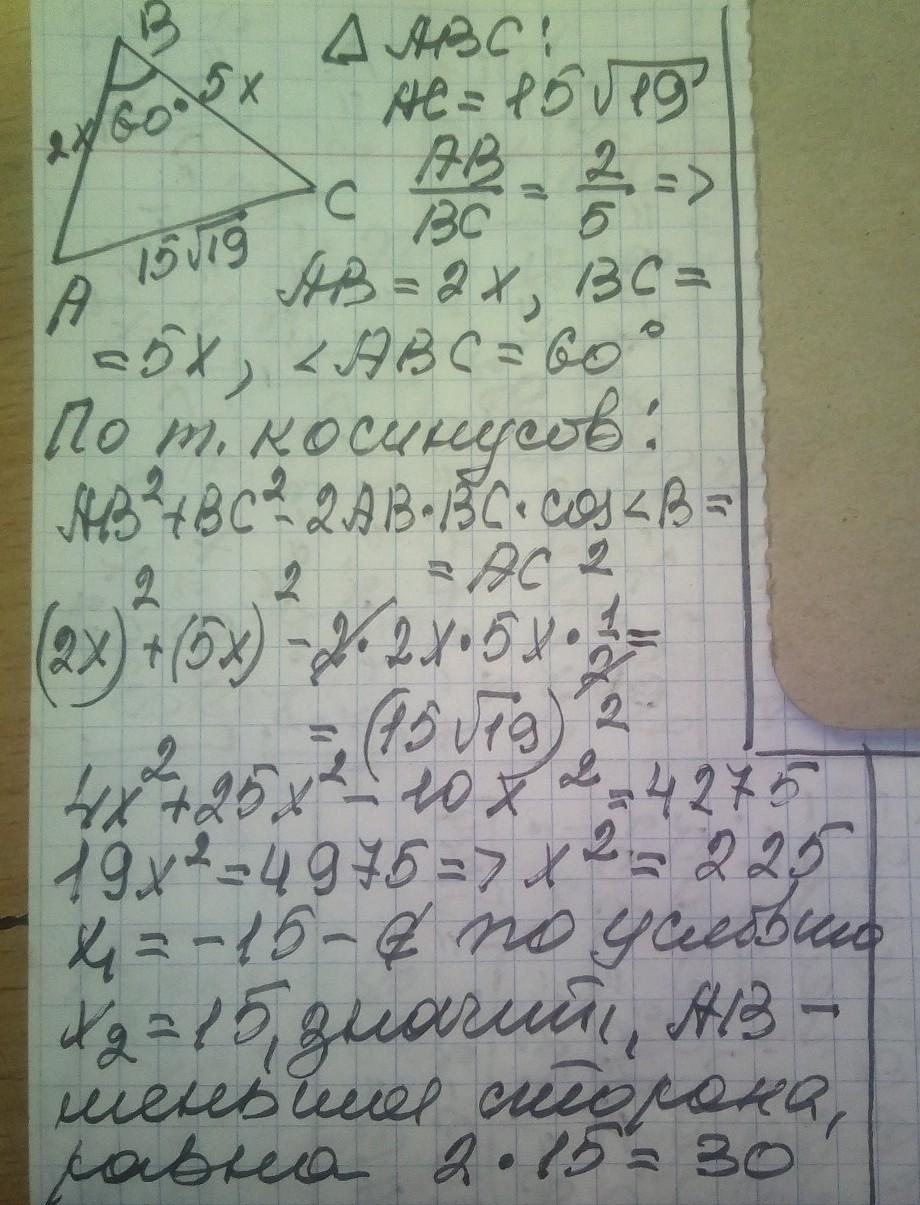 B
△ ABC:
5x
AC = 15√19
2x 60°
AB/BC = 2/5 =>
C
15√19
A
AB = 2x, BC =
= 5x, <ABC = 60°
По т. косинусов:
AB² + BC² - 2AB·BC·cos<B =
= AC²
(2x)² + (5x)² - 2·2x·5x·1/2 =
= (15√19)²
4x² + 25x² - 10x² = 4275
19x² = 4975 => x² = 225
x₁ = -15 - ∉ по условию
x₂ = 15, значит, AB -
меньшая сторона,
равна 2·15 = 30